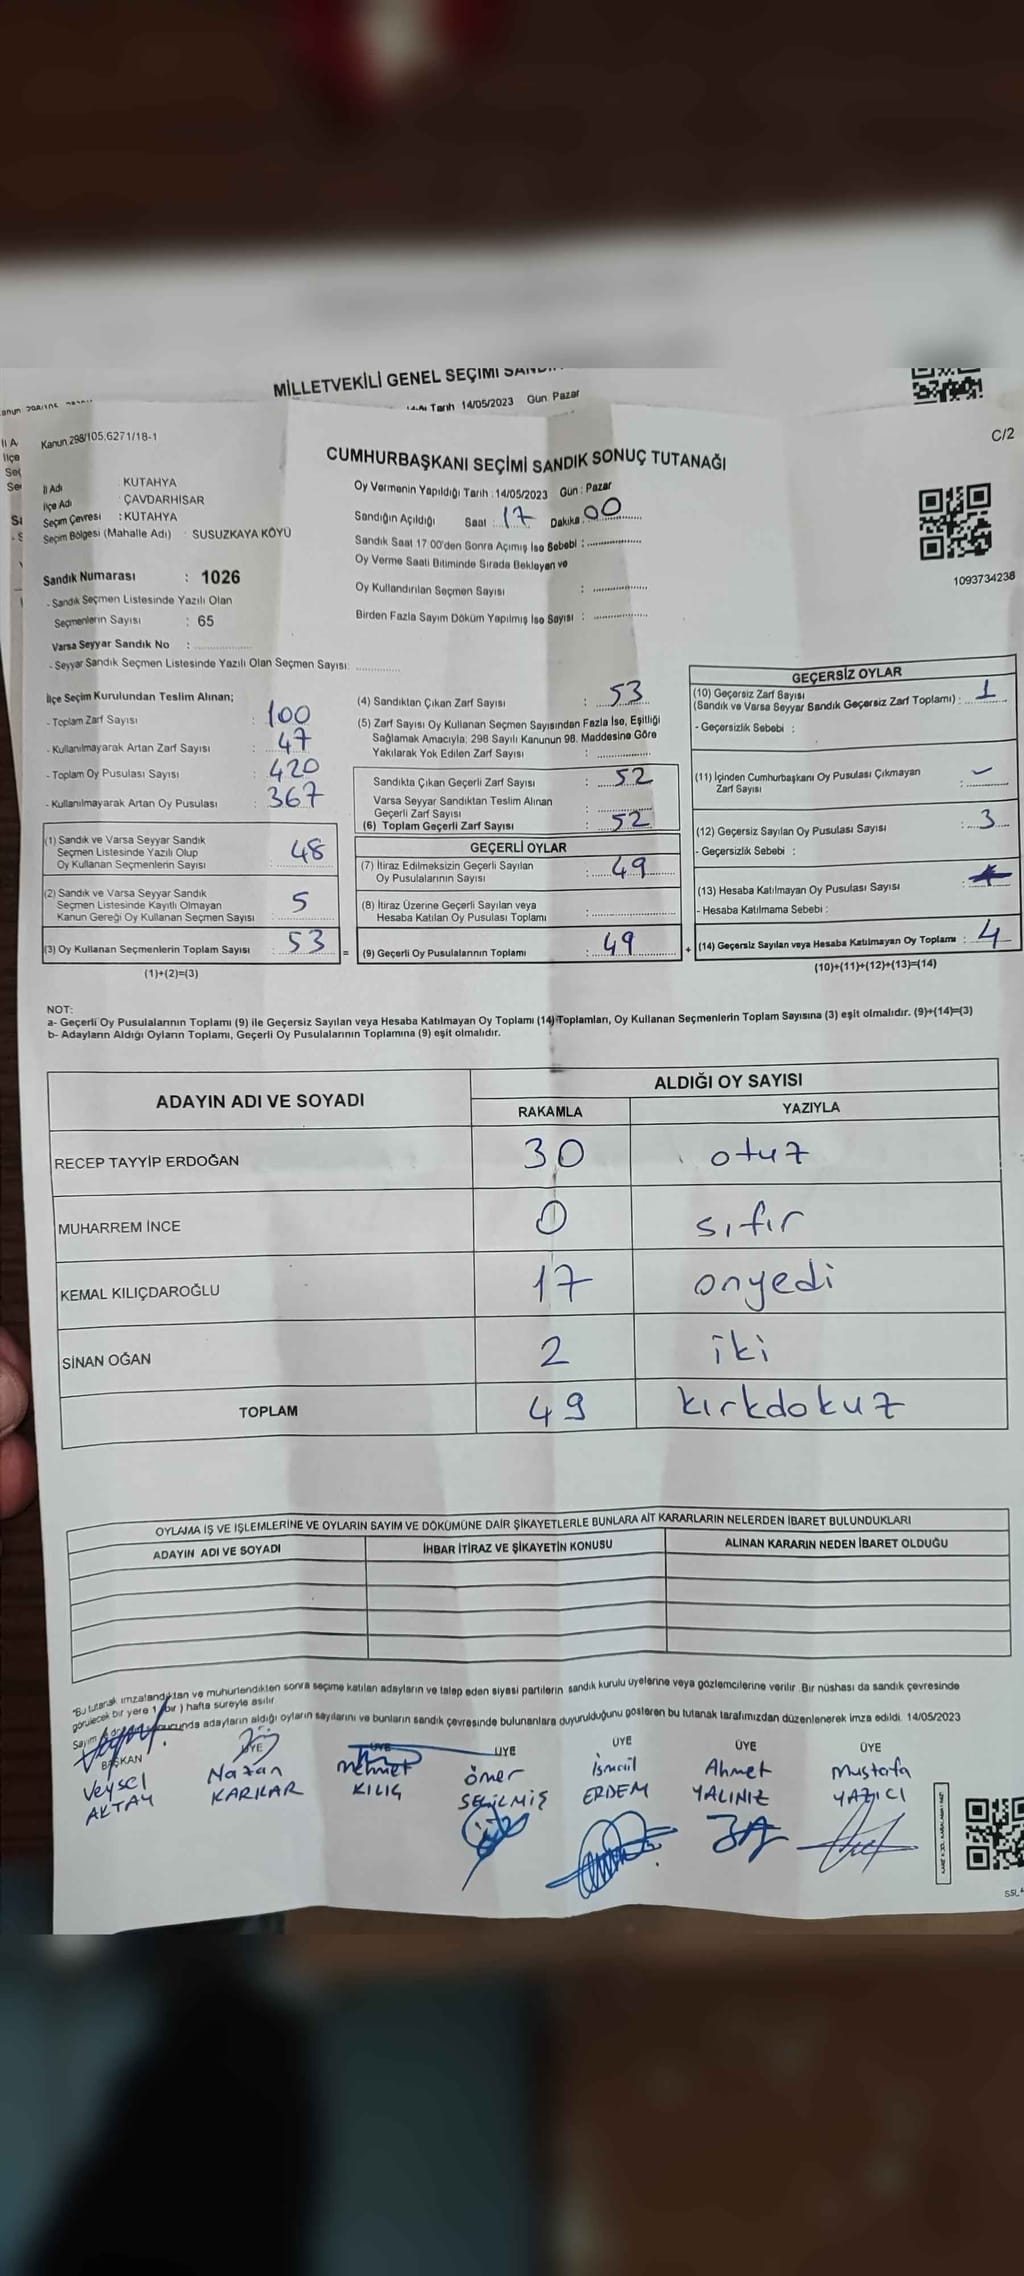 MİLLETVEKİLİ GENEL SEÇİMİ
Tarih 14/05/2023 Gün Pazar
Kanun 298/105,6271/18-1
C/2
CUMHURBAŞKANI SEÇİMİ SANDIK SONUÇ TUTANAĞI
İl Adı : KUTAHYA
İlçe Adı : ÇAVDARHİSAR
Seçim Çevresi : KUTAHYA
Seçim Bölgesi (Mahalle Adı) : SUSUZKAYA KÖYÜ
Oy Vermenin Yapıldığı Tarih : 14/05/2023 Gün : Pazar
Sandığın Açıldığı Saat : 17 Dakika 00
Sandık Saat 17 00'den Sonra Açımış İse Sebebi :
Oy Verme Saati Bitiminde Sırada Bekleyen ve
Oy Kullandırılan Seçmen Sayısı :
Birden Fazla Sayım Döküm Yapılmış İse Sayısı :
1093734238
Sandık Numarası : 1026
- Sandık Seçmen Listesinde Yazılı Olan
Seçmenlerin Sayısı : 65
Varsa Seyyar Sandık No :
- Seyyar Sandık Seçmen Listesinde Yazılı Olan Seçmen Sayısı:
İlçe Seçim Kurulundan Teslim Alınan;
- Toplam Zarf Sayısı : 100
- Kullanılmayarak Artan Zarf Sayısı : 47
- Toplam Oy Pusulası Sayısı : 420
- Kullanılmayarak Artan Oy Pusulası : 367
(1) Sandık ve Varsa Seyyar Sandık
Seçmen Listesinde Yazılı Olup
Oy Kullanan Seçmenlerin Sayısı : 48
(2) Sandık ve Varsa Seyyar Sandık
Seçmen Listesinde Kayıtlı Olmayan
Kanun Gereği Oy Kullanan Seçmen Sayısı : 5
(3) Oy Kullanan Seçmenlerin Toplam Sayısı : 53 =
(1)+(2)=(3)
(4) Sandıktan Çıkan Zarf Sayısı : 53
(5) Zarf Sayısı Oy Kullanan Seçmen Sayısından Fazla İse, Eşitliği
Sağlamak Amacıyla; 298 Sayılı Kanunun 98. Maddesine Göre
Yakılarak Yok Edilen Zarf Sayısı :
Sandıkta Çıkan Geçerli Zarf Sayısı : 52
Varsa Seyyar Sandıktan Teslim Alınan
Geçerli Zarf Sayısı :
(6) Toplam Geçerli Zarf Sayısı : 52
GEÇERLİ OYLAR
(7) İtiraz Edilmeksizin Geçerli Sayılan
Oy Pusulalarının Sayısı : 49
(8) İtiraz Üzerine Geçerli Sayılan veya
Hesaba Katılan Oy Pusulası Toplamı :
(9) Geçerli Oy Pusulalarının Toplamı : 49 +
GEÇERSİZ OYLAR
(10) Geçersiz Zarf Sayısı
(Sandık ve Varsa Seyyar Sandık Geçersiz Zarf Toplamı) : 1
- Geçersizlik Sebebi :
(11) İçinden Cumhurbaşkanı Oy Pusulası Çıkmayan
Zarf Sayısı : -
(12) Geçersiz Sayılan Oy Pusulası Sayısı : 3
- Geçersizlik Sebebi :
(13) Hesaba Katılmayan Oy Pusulası Sayısı :
- Hesaba Katılmama Sebebi :
(14) Geçersiz Sayılan veya Hesaba Katılmayan Oy Toplamı : 4
(10)+(11)+(12)+(13)=(14)
NOT:
a- Geçerli Oy Pusulalarının Toplamı (9) ile Geçersiz Sayılan veya Hesaba Katılmayan Oy Toplamı (14) Toplamları, Oy Kullanan Seçmenlerin Toplam Sayısına (3) eşit olmalıdır. (9)+(14)=(3)
b- Adayların Aldığı Oyların Toplamı, Geçerli Oy Pusulalarının Toplamına (9) eşit olmalıdır.
ADAYIN ADI VE SOYADI
ALDIĞI OY SAYISI
RAKAMLA YAZIYLA
RECEP TAYYİP ERDOĞAN 30 otuz
MUHARREM İNCE 0 sıfır
KEMAL KILIÇDAROĞLU 17 onyedi
SİNAN OĞAN 2 iki
TOPLAM 49 kırkdokuz
OYLAMA İŞ VE İŞLEMLERİNE VE OYLARIN SAYIM VE DÖKÜMÜNE DAİR ŞİKAYETLERLE BUNLARA AİT KARARLARIN NELERDEN İBARET BULUNDUKLARI
ADAYIN ADI VE SOYADI İHBAR İTİRAZ VE ŞİKAYETİN KONUSU ALINAN KARARIN NEDEN İBARET OLDUĞU
"Bu tutanak imzalandıktan ve mühürlendikten sonra seçime katılan adayların ve talep eden siyasi partilerin sandık kurulu üyelerine veya gözlemcilerine verilir. Bir nüshası da sandık çevresinde
görülecek bir yere 1 (bir) hafta süreyle asılır
Sayım sonucunda adayların aldığı oyların sayılarını ve bunların sandık çevresinde bulunanlara duyurulduğunu gösteren bu tutanak tarafımızdan düzenlenerek imza edildi. 14/05/2023
BAŞKAN ÜYE ÜYE ÜYE ÜYE ÜYE ÜYE
Veysel Nazan Mehmet Ömer İsmail Ahmet Mustafa
AKTAY KARKAR KILIÇ SEÇİLMİŞ ERDEM YALINIZ YAZICI